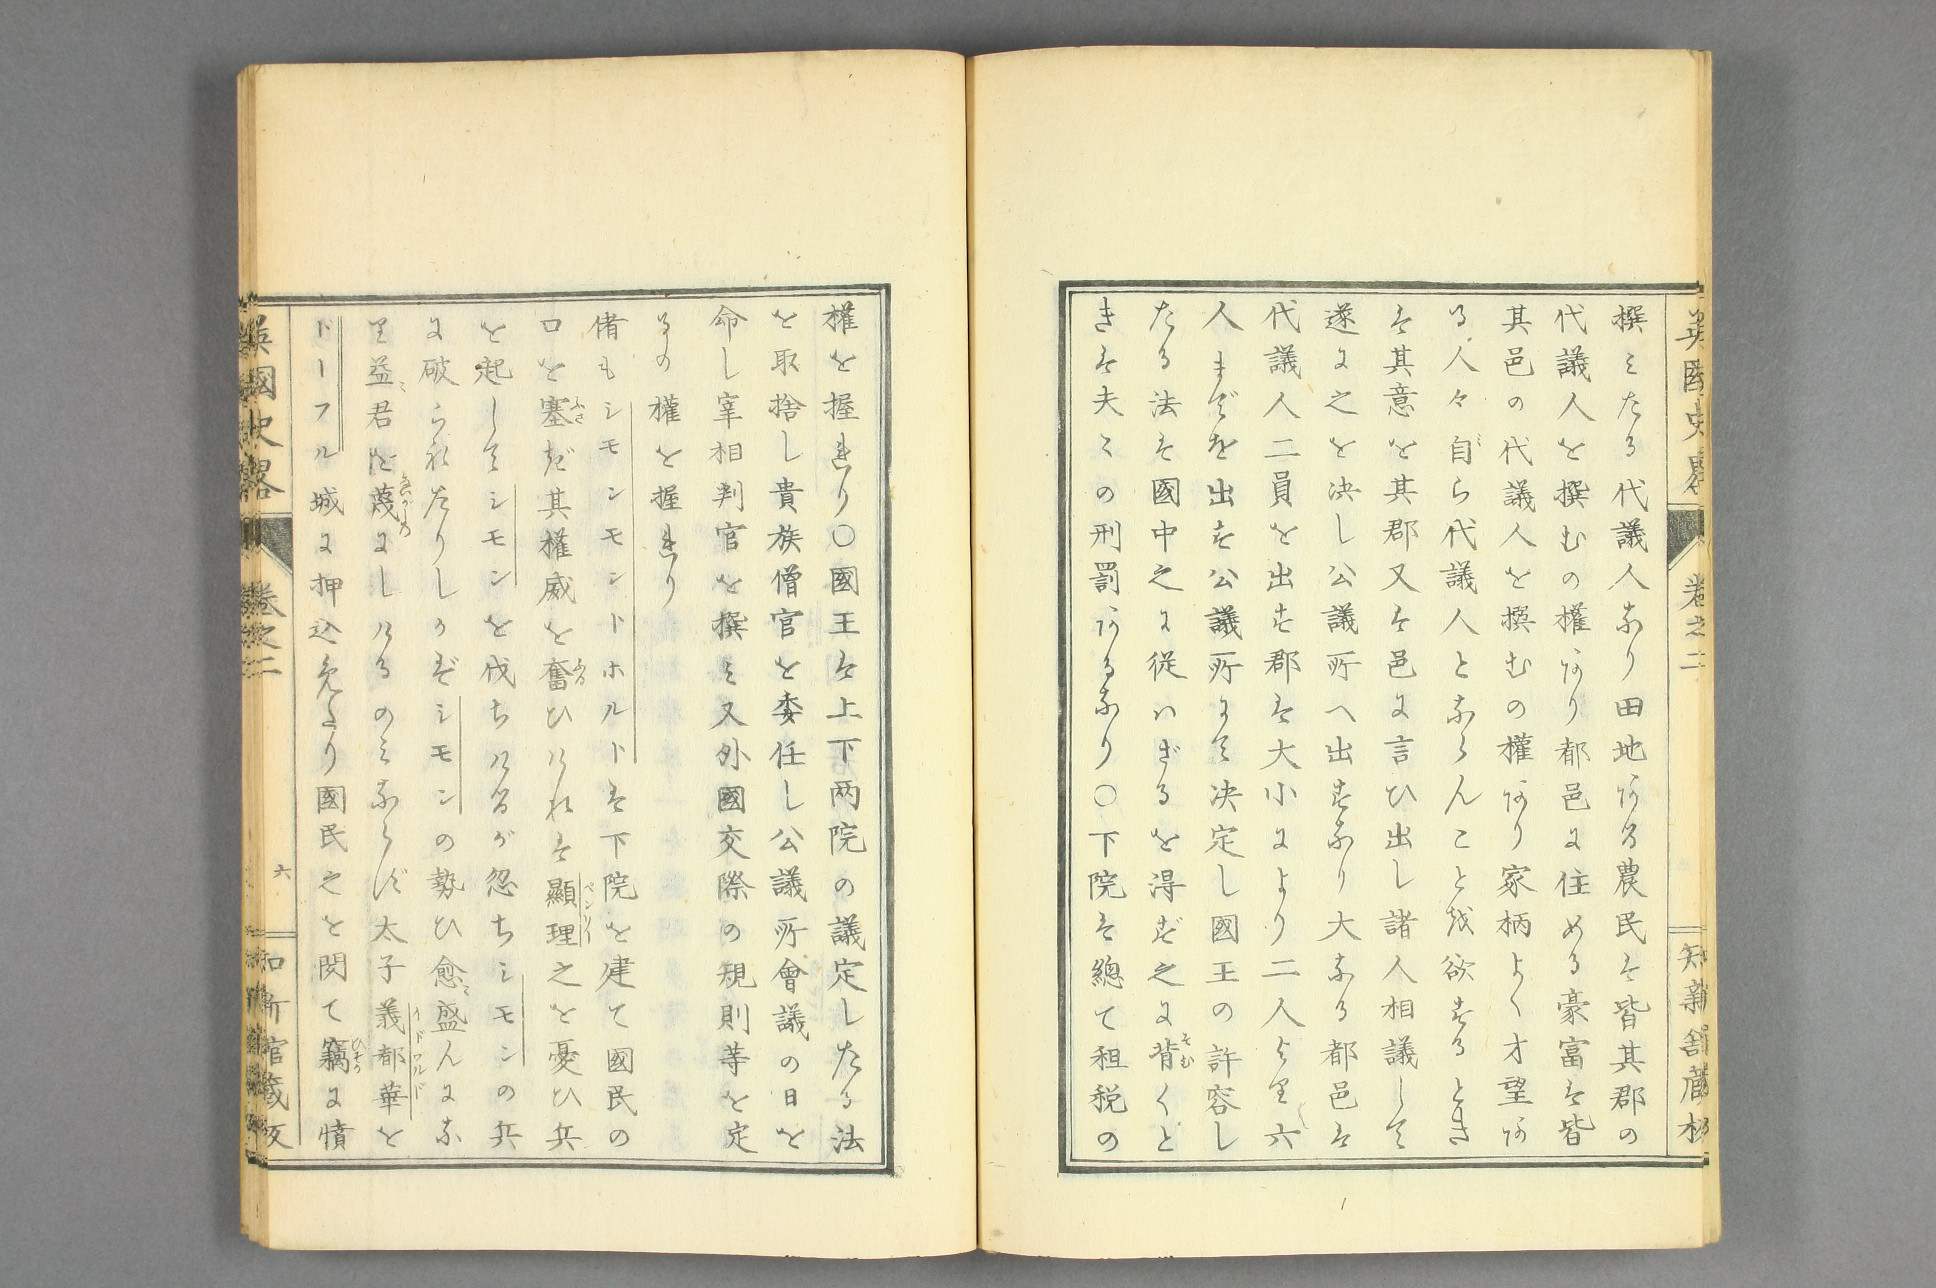 撰ミたる代議人なり田地ある農民は皆其郡の
代議人を撰むの權あり都邑に住める豪富は皆
其邑の代議人を撰むの權あり家柄よく才望あ
る人々自ら代議人とならんことを欲するとき
は其意を其郡又は邑に言ひ出し諸人相議して
遂に之を决し公議所へ出すなり大なる都邑は
代議人二員を出す郡は大小により二人より六
人までを出す公議所にて决定し國王の許容し
たる法は國中之に従はざるを得ず之に背くと
きは夫々の刑罰あるなり○下院は總て租税の
權を握れり○國王は上下両院の議定したる法
を取捨し貴族僧官を委任し公議所會議の日を
命し宰相判官を撰ミ又外國交際の規則等を定
るの權を握れり
偖もシモンモントホルトは下院を建て國民の
口を塞ぎ其權威を奮ひけれは顯理之を憂ひ兵
を起してシモンを伐ちけるが忽ちシモンの兵
に破られたりしかばシモンの勢ひ愈盛んにな
り益君を蔑にしけるのミならず太子義都華を
ドーフル城に押込免たり國民之を聞て竊に憤
英國史畧 卷之二 知新館藏板
英國史畧 卷之二 六 知新館藏板